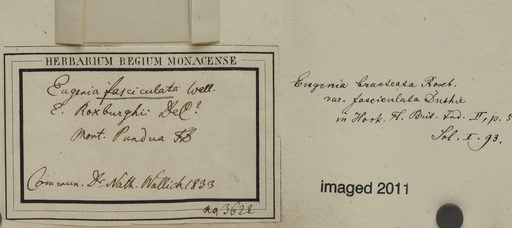 HERBARIUM REGIUM MONACENSE
Eugenia fasciculata Wall.
E. Roxburghii DeC?
Mont. Pundua
Commun. Dr Nath. Wallich 1833
no. 3622
Eugenia bracteata Roxb.
var. fasciculata Duthie
in Hook. Fl. Brit. Ind. II, p. 5
Sol. I. 93.
imaged 2011